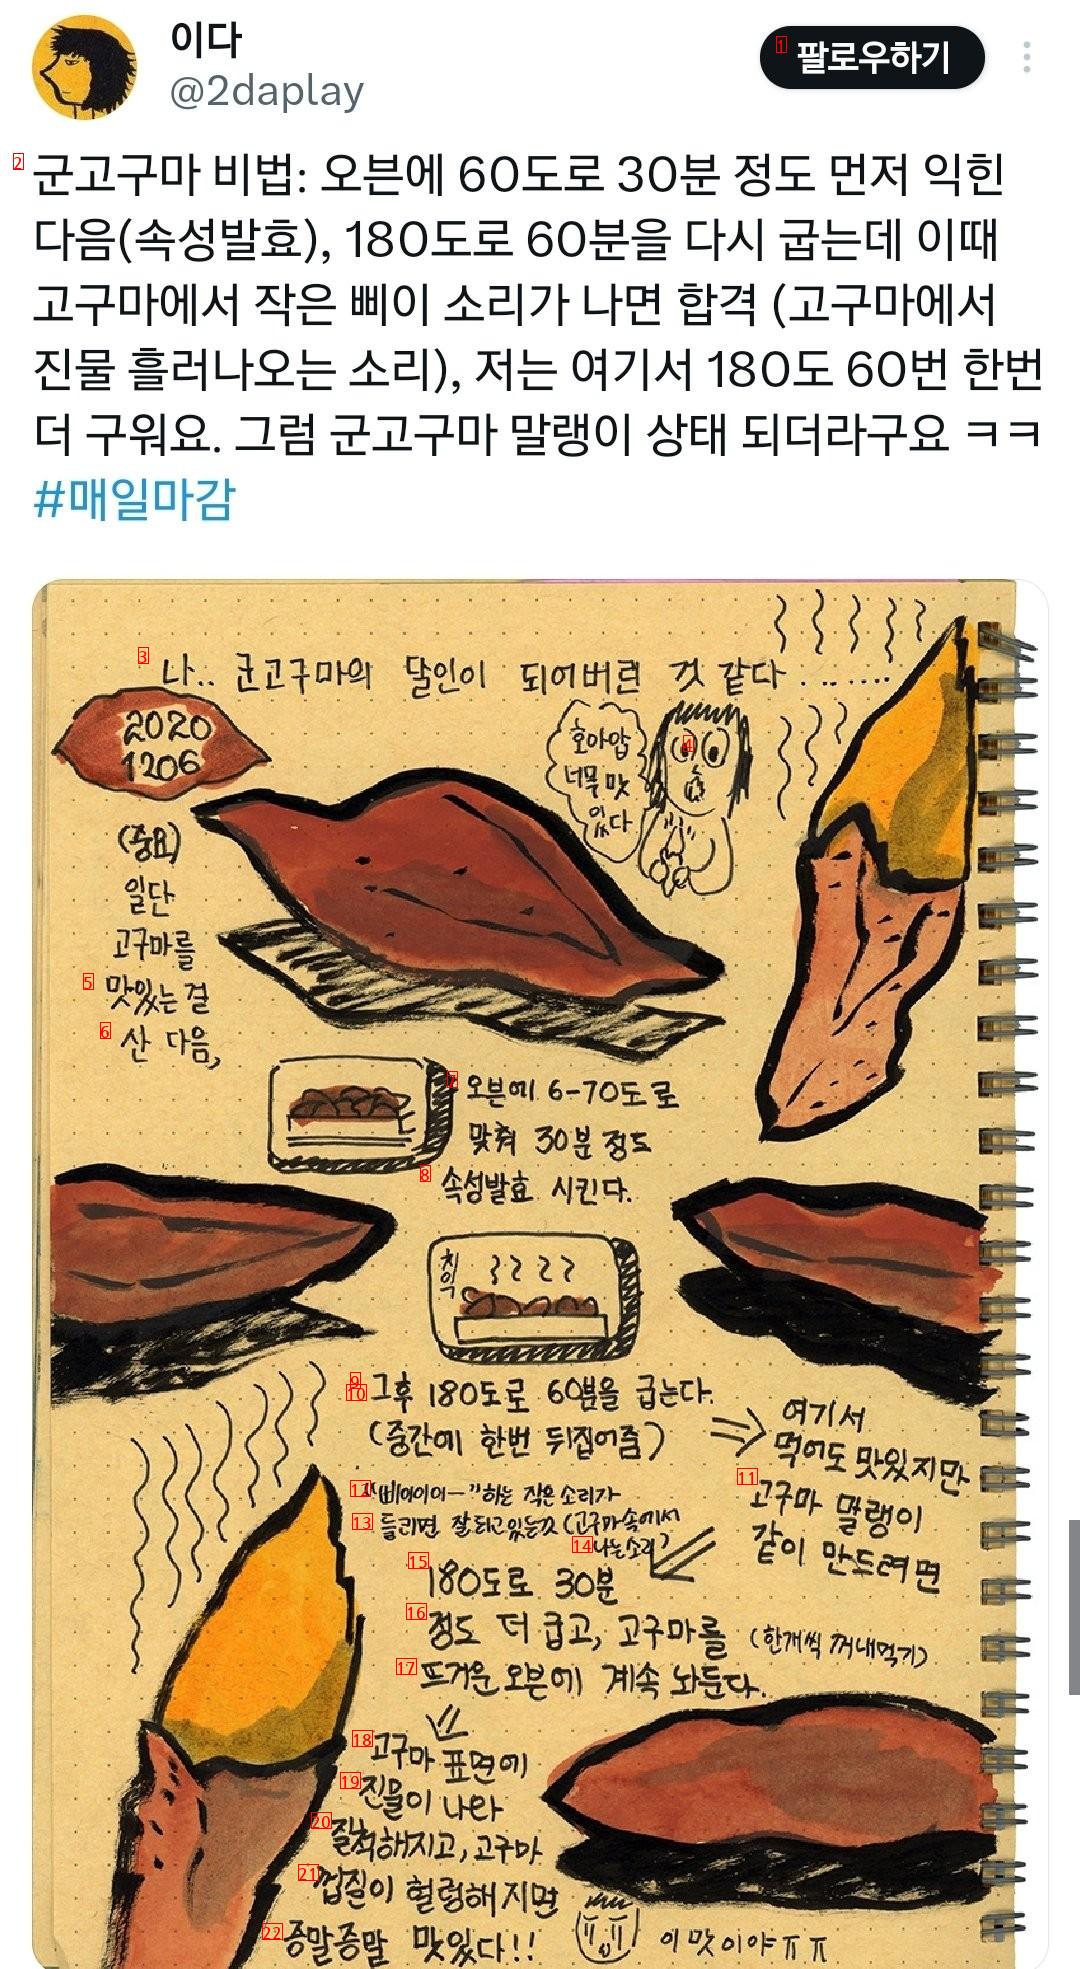 이다
@2daplay
팔로우하기
군고구마 비법: 오븐에 60도로 30분 정도 먼저 익힌
다음(속성발효), 180도로 60분을 다시 굽는데 이때
고구마에서 작은 삐이 소리가 나면 합격 (고구마에서
진물 흘러나오는 소리), 저는 여기서 180도 60번 한번
더 구워요. 그럼 군고구마 말랭이 상태 되더라구요 ㅋㅋ
#매일마감
나.. 군고구마의 달인이 되어버린 것 같다.......
2020
1206
호아압
너무 맛
있다
(중요)
일단
고구마를
맛있는 걸
산 다음,
오븐에 6-70도로
맞춰 30분 정도
속성발효 시킨다.
치익
그후 180도로 60분을 굽는다.
(중간에 한번 뒤집어줌)
여기서
먹어도 맛있지만
고구마 말랭이
같이 만드려면
"삐이이이ㅡ"하는 작은 소리가
들리면 잘 되고있는것 (고구마속에서
나는소리)
180도로 30분
정도 더 굽고, 고구마를 (한개씩 꺼내먹기)
뜨거운 오븐에 계속 놔둔다.
고구마 표면에
진물이 나와
질척해지고, 고구마
껍질이 헐렁해지면
증말증말 맛있다!!
이 맛이야ㅠㅠ
1
2
3
4
5
6
7
8
9
10
11
12
13
14
15
16
17
18
19
20
21
22